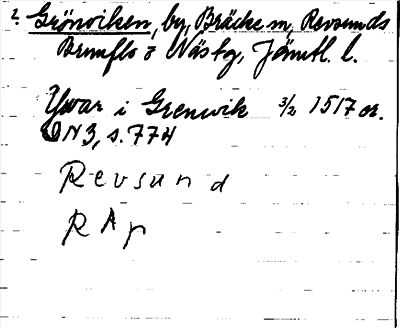 ? Grönviken, by, Bräcke sn, Revsunds
Brunflo o Näs tg, Jämtl. l.
Ywar i Grenwik 3/2 1517 or.
DN 3, s. 774
Revsund
RAp